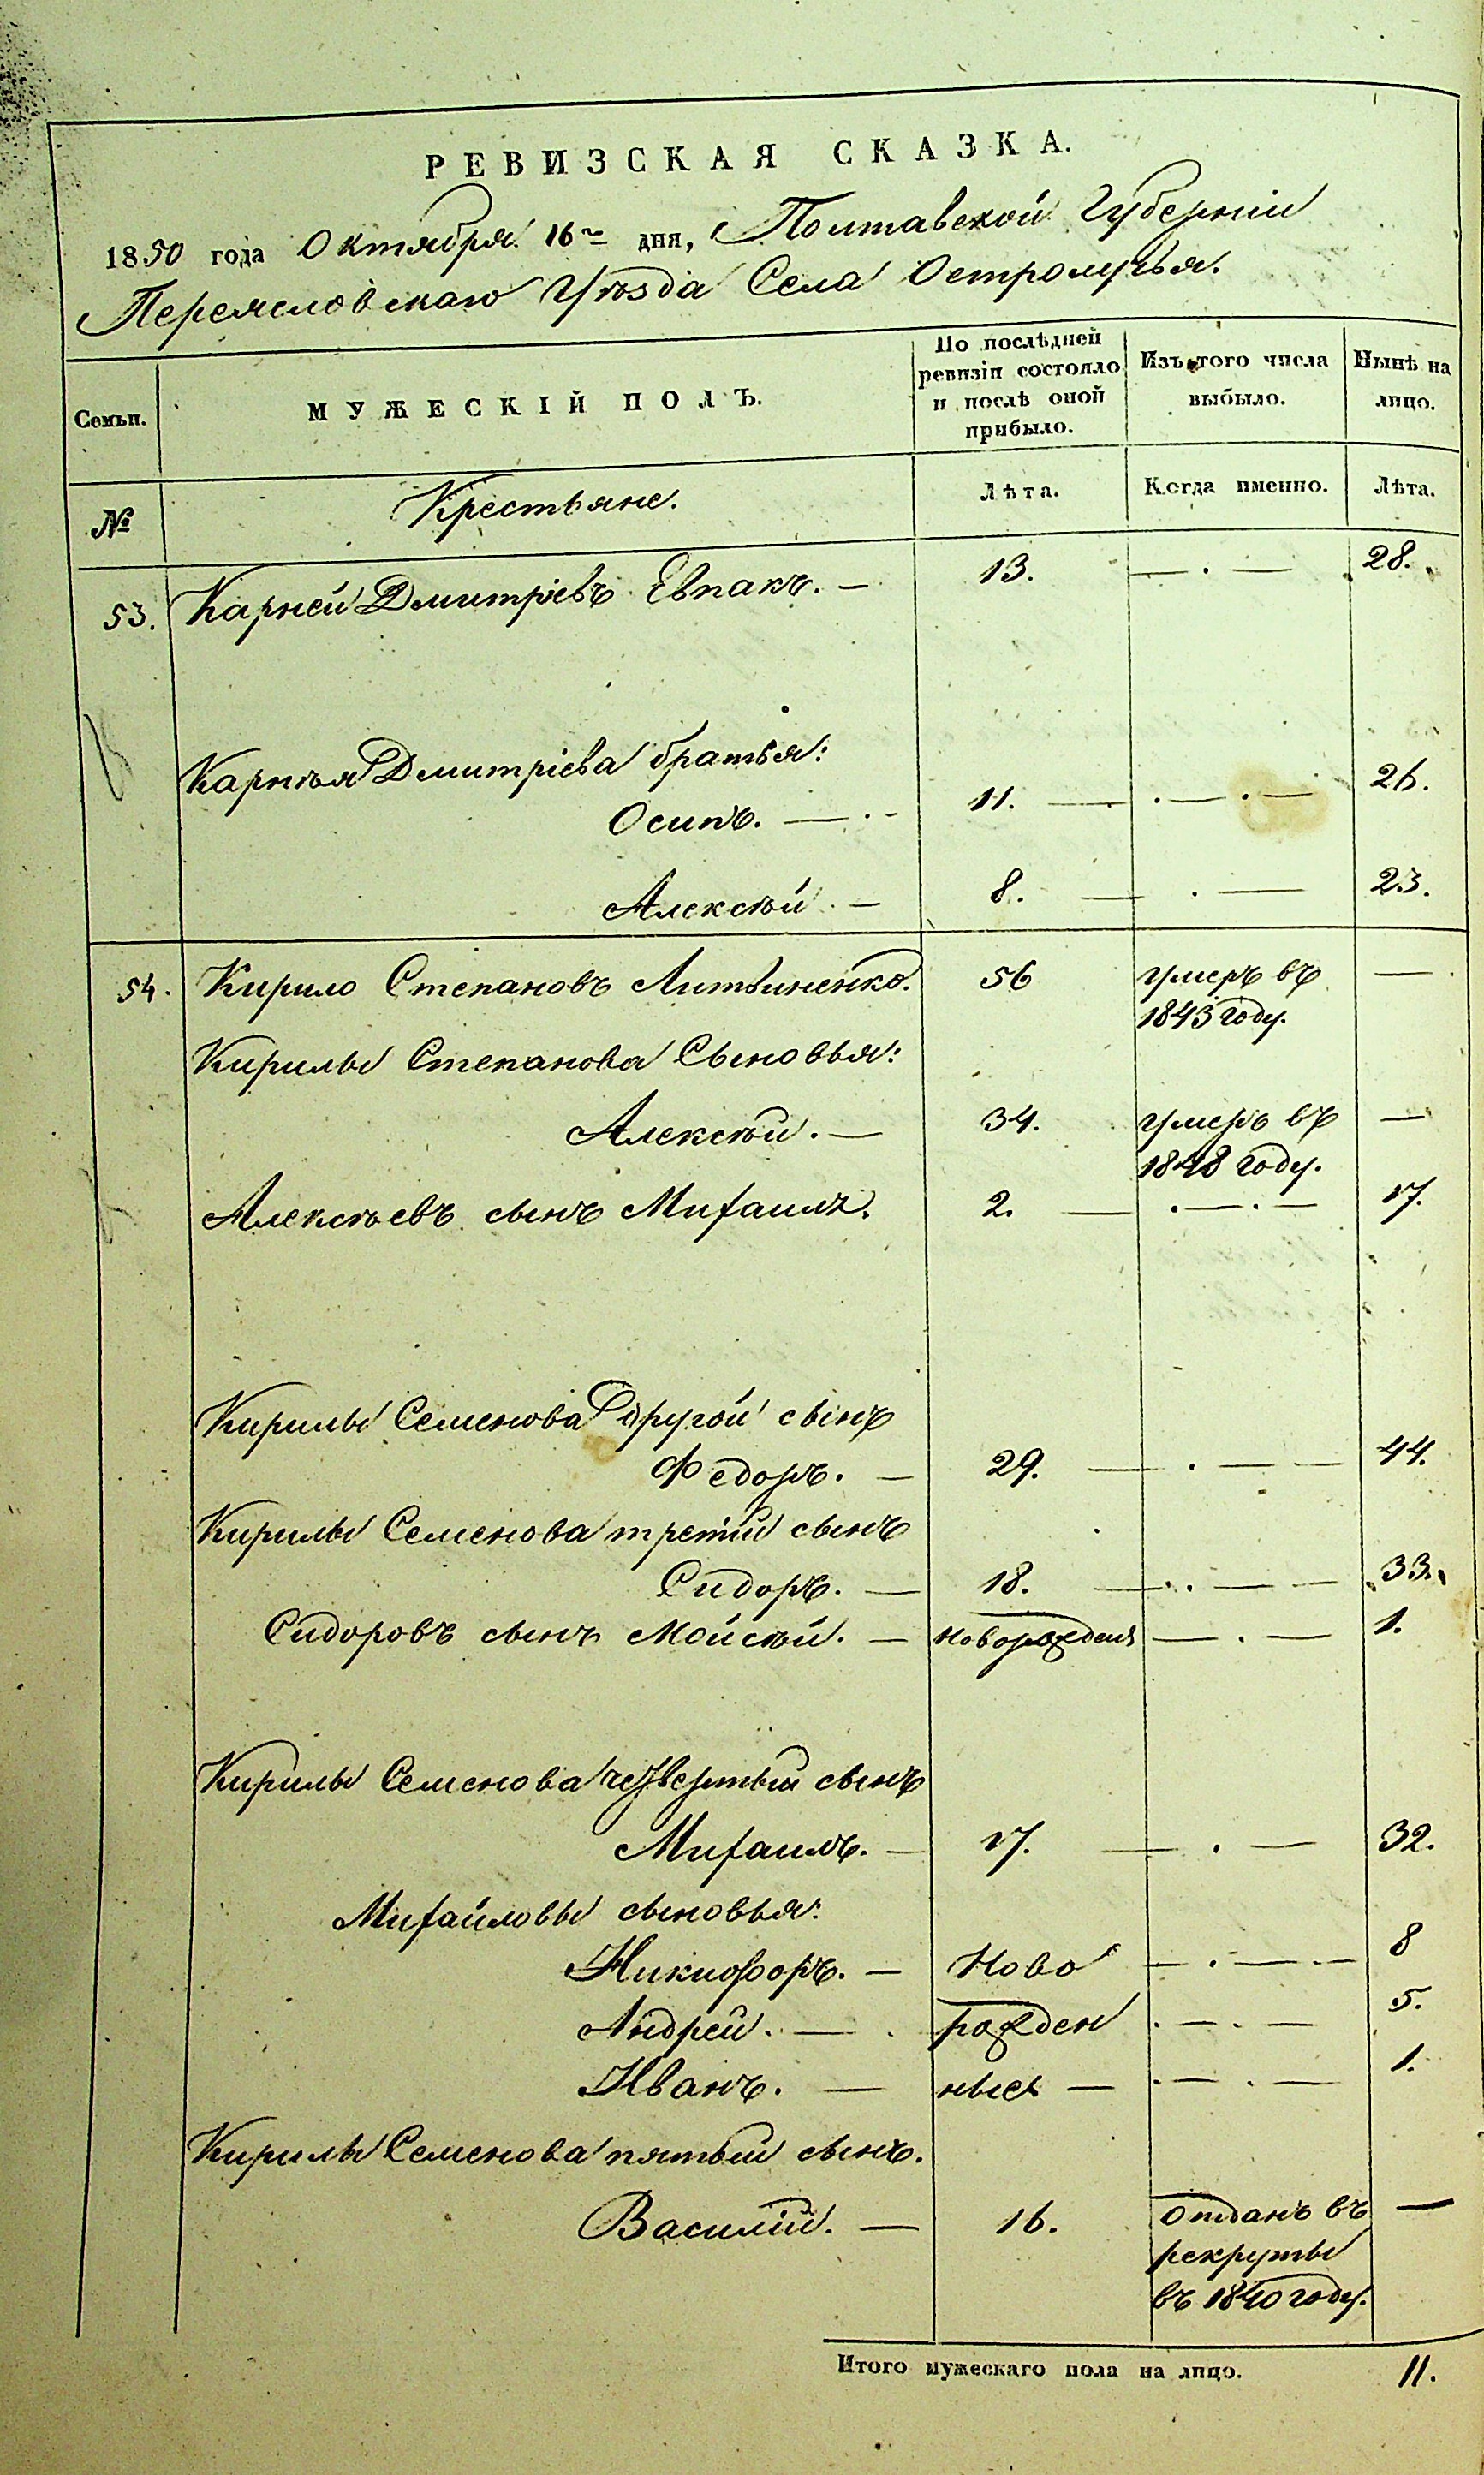 РЕВИЗСКАЯ СКАЗКА.
1850 года Октября 16 дня, Полтавской Губерніи
Переяслօвскаго Уѣзда Села Остролучья.
Семьи. МУЖЕСКІЙ ПОЛЪ. По послѣдней ревизіи состояло и послѣ оной прибыло. Изъ того числа выбыло. Нынѣ на лицо.
№ Крестьяне. Лѣта. Когда именно. Лѣта.
53. Карней Дмитріевъ Евпакъ. — 13. — . — 28.
Карнѣя Дмитріева братья:
Осипъ. — 11. — . — . — 26.
Алексѣй. — 8. — . — 23.
54. Кирило Степановъ Литвиненко. 56 умеръ въ —
1843 году.
Кирилы Степанова Сыновья:
Алексѣй. — 34. умеръ въ —
1848 году.
Алексѣевъ сынъ Михаилъ. 2. — . — . — 17.
Кирилы Семенова другой сынъ
Федоръ. — 29. — . — — 44.
Кирилы Семенова третій сынъ
Сидоръ. — 18. — . . — — 33.
Сидоровъ сынъ Мойсѣй. — новорожден — . — 1.
Кирилы Семенова четвертый сынъ
Михаилъ. — 17. — . — 32.
Михайловы сыновья:
Никифоръ. — Ново — . — . — 8
Андрей. — рожден . — . — 5.
Иванъ. — ные — . — . — 1.
Кирилы Семенова пятый сынъ.
Василій. — 16. Отданъ въ —
рекруты
въ 1840 году.
Итого мужескаго пола на лицо. 11.